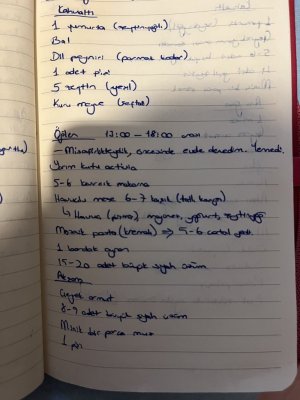 Kahvaltı
1 yumurta (zeytinyağlı)
Bal
Dil peyniri (parmak kadar)
1 adet
5 zeytin (yeşil)
Kuru meyve
Öğlen 13:00 – 18:00 arası
– Misafirlikteydik, öncesinde evde denedim. Yemedi.
Yarım kutu activia
5-6 makarna
Havuclu meze 6-7 kaşık (tatlı kaşığı)
↳ Havuc, mayonez, yoğurt, zeytinyağı
Mozaik pasta (kremalı) ⇒ 5-6 çatal yedi.
1 bardak ayran
15-20 adet büyük siyah üzüm
Akşam
armut
8-9 adet büyük siyah üzüm
Minik bir parça muz
1